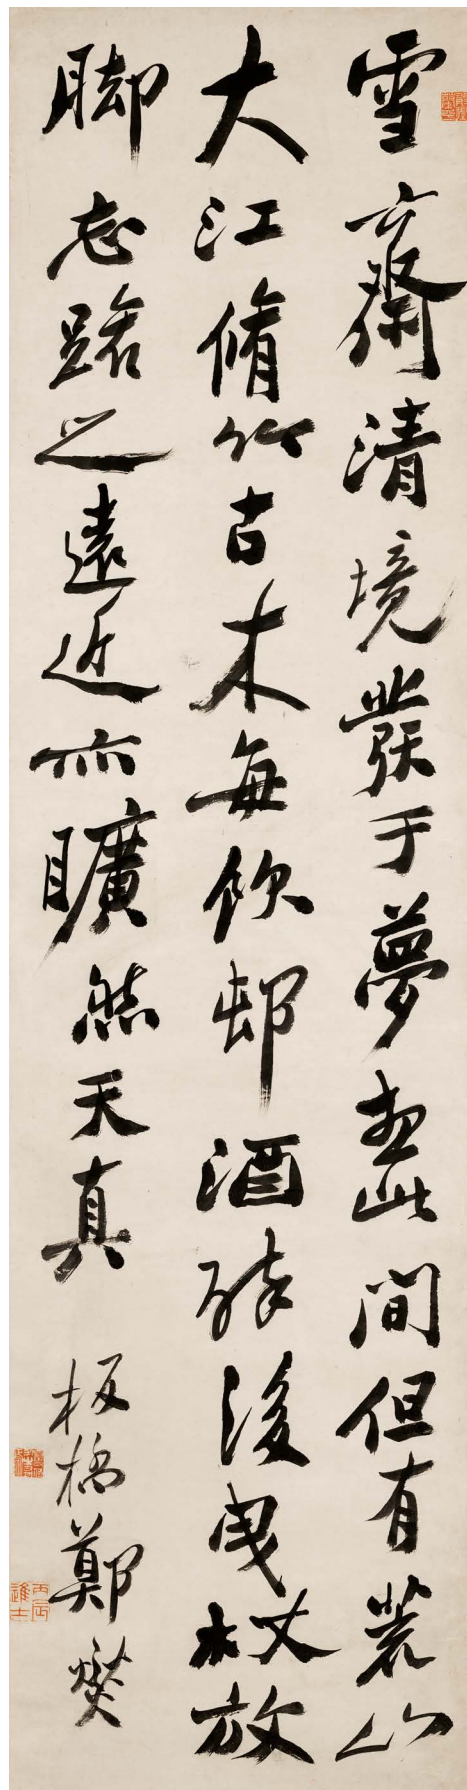 雪齋清境發于夢想此間但有荒山
大江脩竹古木每飲邨酒醉後曳杖放
脚忘路之遠近亦矌然天真
板橋鄭燮
丙辰進士